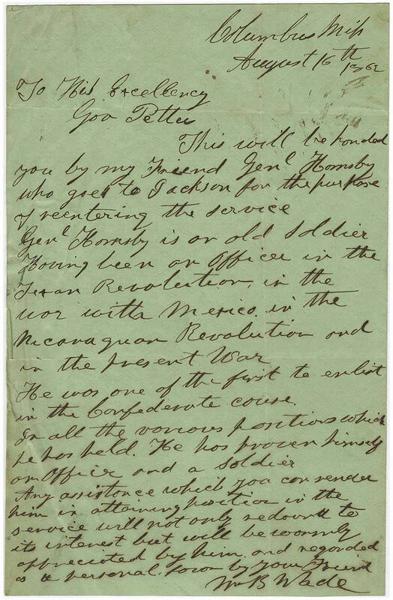 Columbus Miss
August 16th 1862
To His Excellency
Gov Pettus
This will be handed
you by my Friend Genl Hornsby
who goes to Jackson for the purpose
of reentering the service
Genl Hornsby is an old Soldier
Having been an Officer in the
Texan Revolution, in the
war with Mexico. in the
Nicaraguan Revolution and
in the present War
He was one of the first to enlist
in the Confederate cause.
In all the various positions which
he has held. He has proven himself
an Officer and a Soldier
Any assistance which you can render
him in attaining position in the
service will not only redound to
its interest but will be warmly
appreciated by him and regarded
as a personal favor by your Friend
Wm B Wade